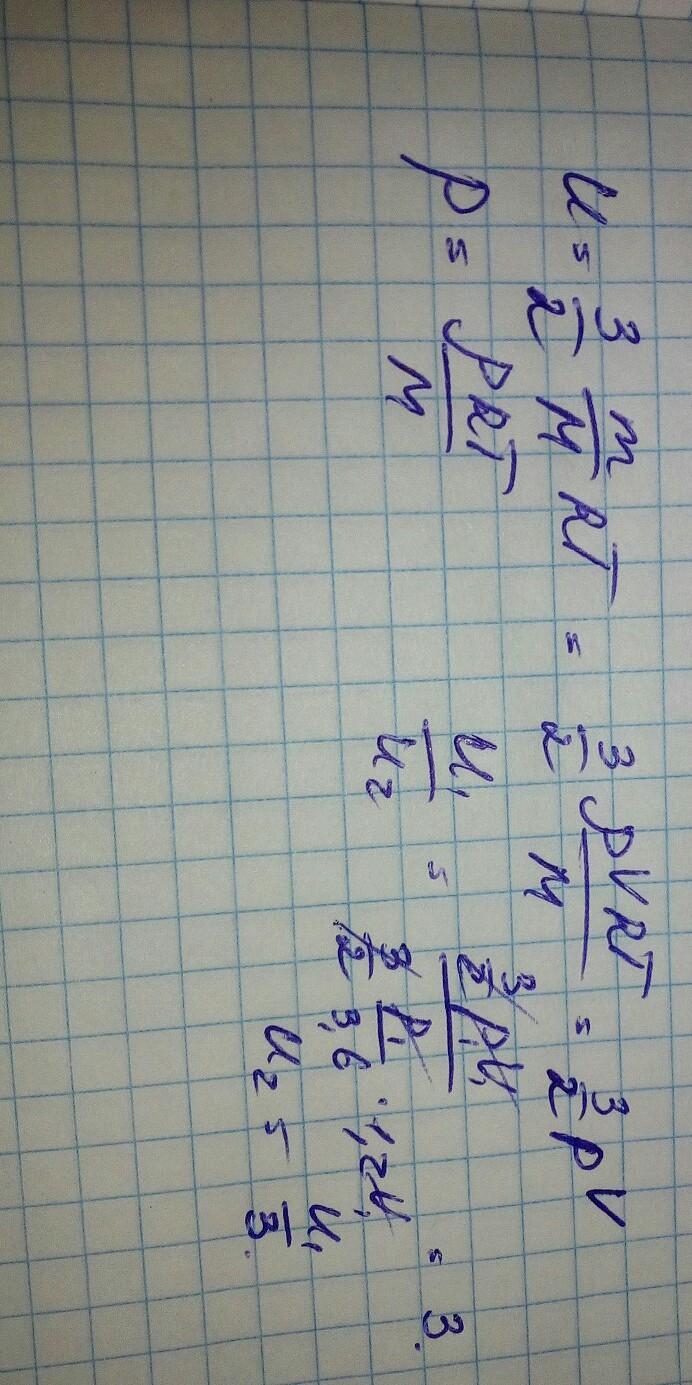 U = 3/2 m/M RT = 3/2 ρVRT/M = 3/2 pV
p = ρRT/M
U₁/U₂ = (3/2 p₁V₁)/(3/2 p₁/3,6 · 1,2V₁) = 3.
U₂ = U₁/3.